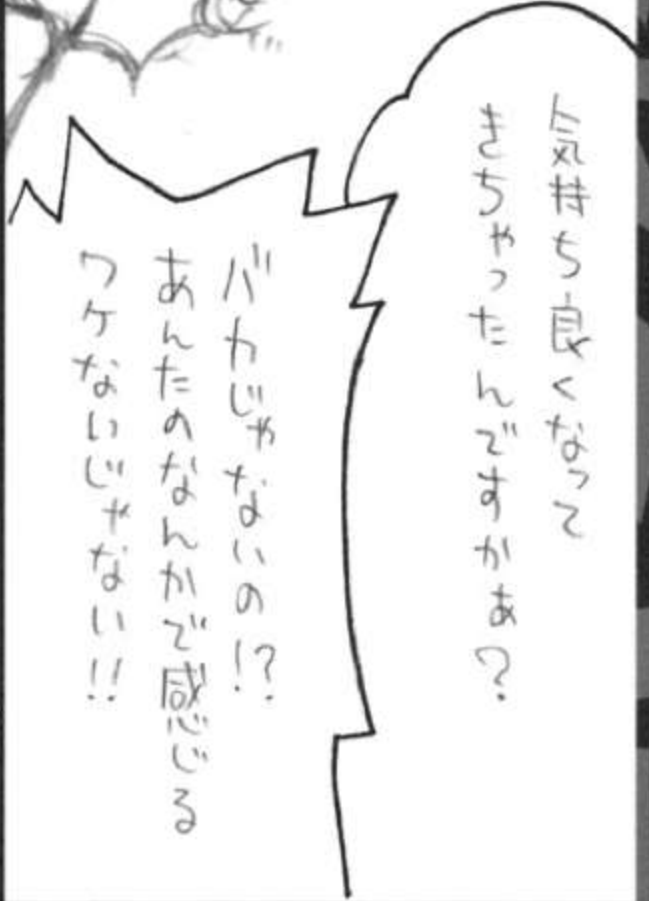 気持ち良くなって
きちゃったんですかぁ？
バカじゃないの!?
あんたのなんかで感じる
ワケないじゃない!!